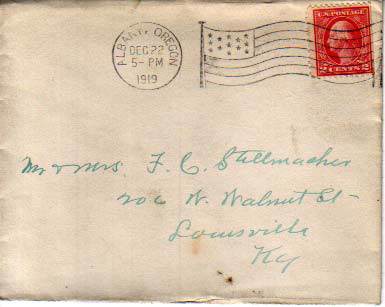 ALBANY, OREGON
DEC 22
5-PM
1919
U.S. POSTAGE
2 CENTS 2
Mr & Mrs. F. C. Stellmacher
206 W. Walnut St-
Louisville
Ky